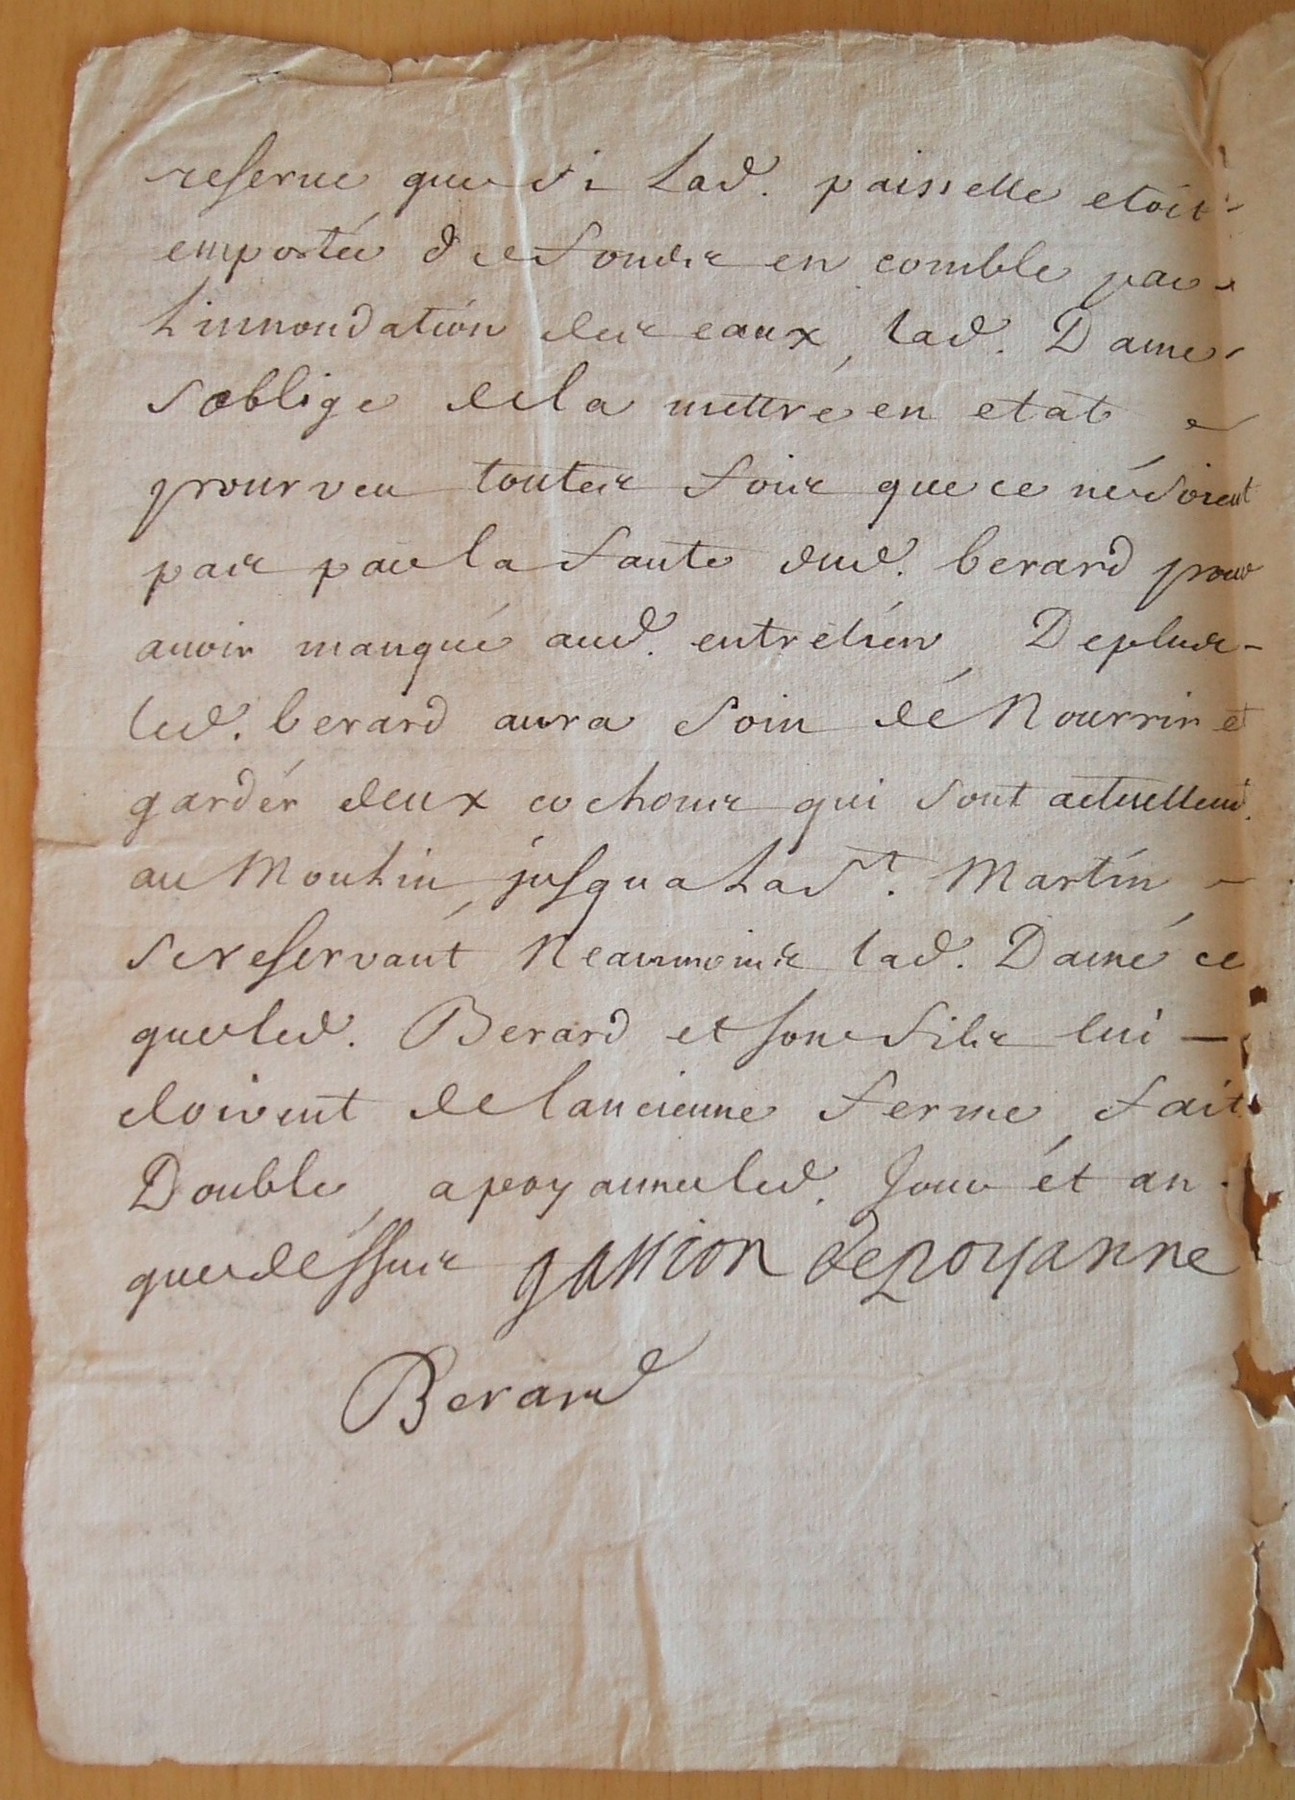 reserve que si Lad. paisselle etoit
emportée de fonds en comble par
Linnondation des eaux, Lad. Dame
soblige de la mettre en etat
pourveu toutes fois que ce ne soient
pas par la faute dud. berard pour
avoir manqué aud. entretien, De plus
led. berard aura soin de Nourrir et
gardér deux cochons qui sont actuellemt.
au Moulin jusqua La St. Martin
se reservant Neanmoins lad. Dame ce
que led. Berard et son fils lui
doivent de lancienne ferme, fait
Double, a poyanne led. Jour et an
que dessus gassion depoyanne
Berard